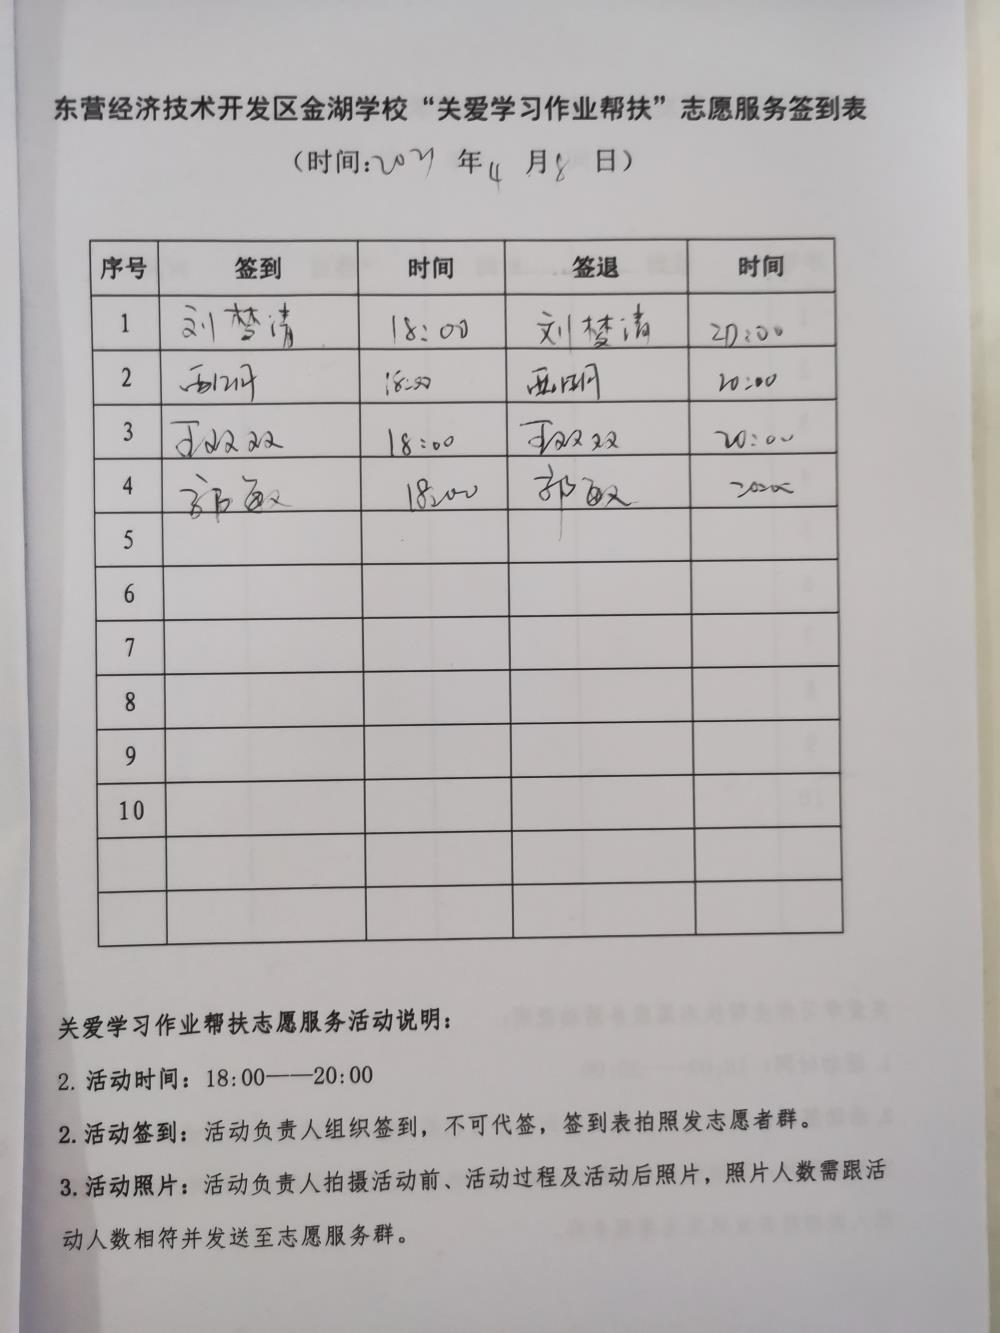 东营经济技术开发区金湖学校“关爱学习作业帮扶”志愿服务签到表
（时间:2021 年 4 月 8 日）
序号 签到 时间 签退 时间
1 刘梦清 18:00 刘梦清 20:00
2 18:00 20:00
3 王双双 18:00 王双双 20:00
4 郭敏 18:00 郭敏 20:00
5
6
7
8
9
10
关爱学习作业帮扶志愿服务活动说明：
2. 活动时间：18:00——20:00
2. 活动签到：活动负责人组织签到，不可代签，签到表拍照发志愿者群。
3. 活动照片：活动负责人拍摄活动前、活动过程及活动后照片，照片人数需跟活
动人数相符并发送至志愿服务群。